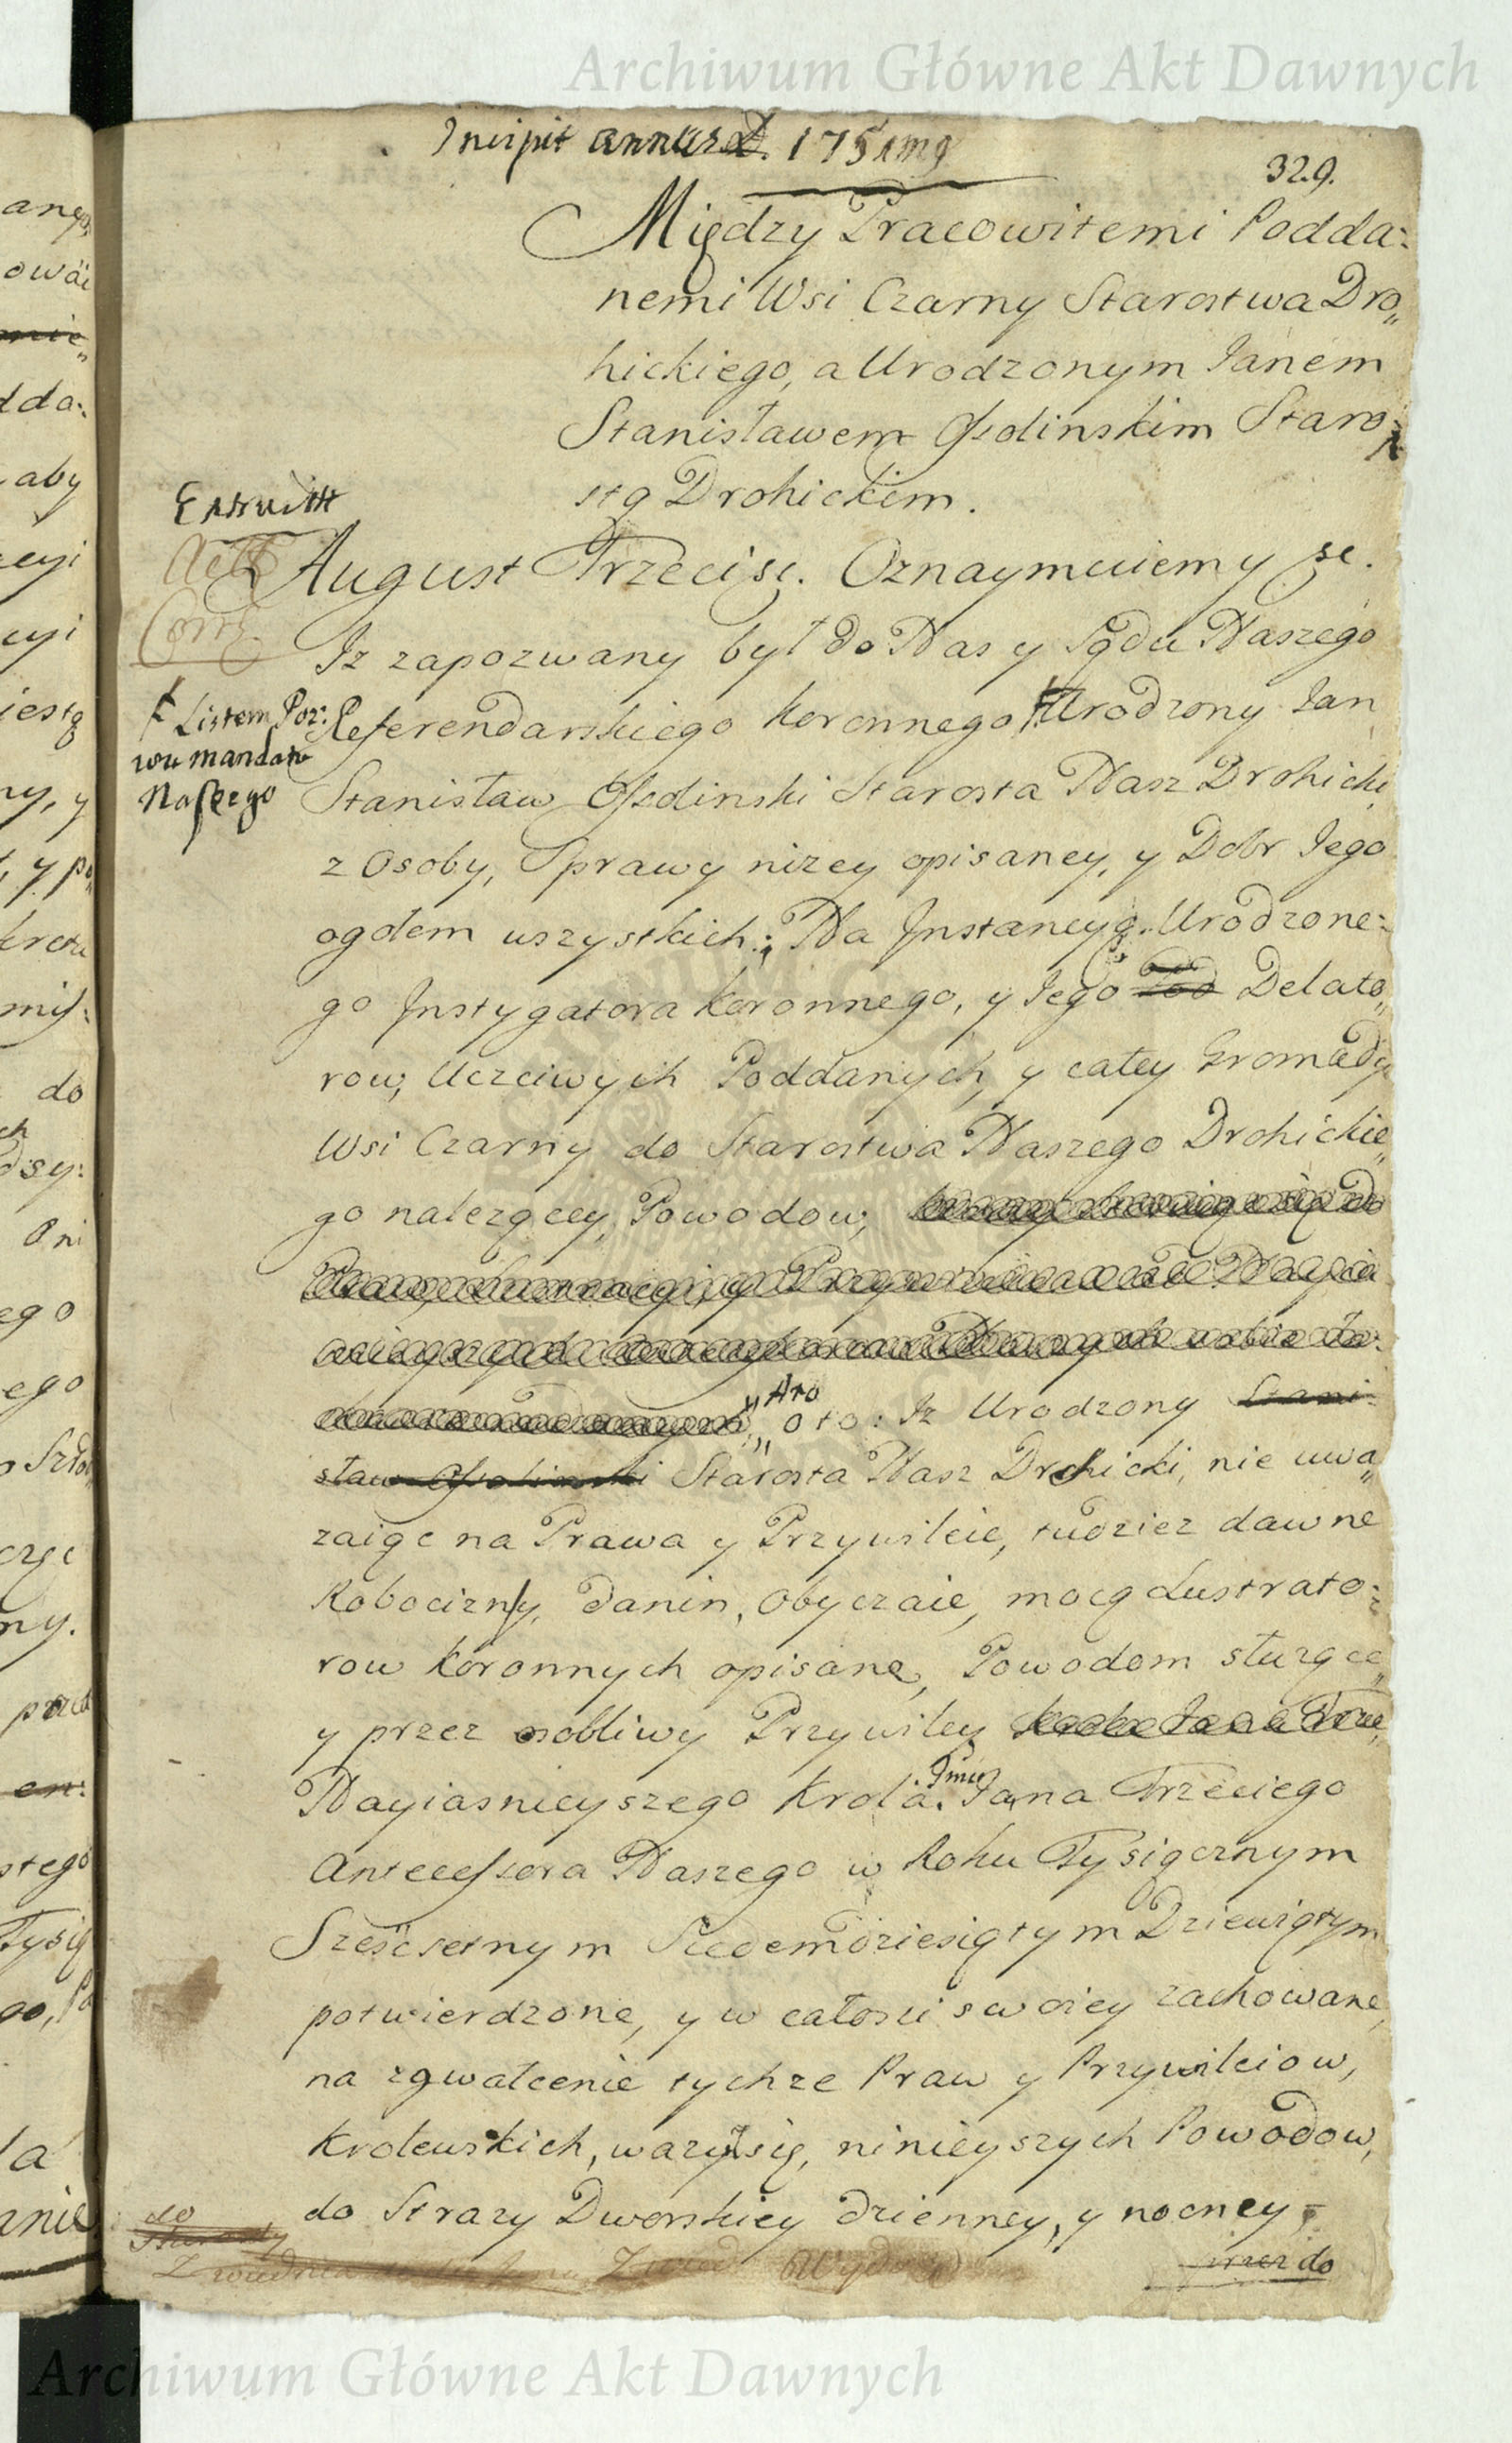 Archiwum Główne Akt Dawnych
Incipit annus D. 1751mg
329.
Między Pracowitemi Podda:
nemi Wsi Czarny Starostwa Dro„
hickiego, a Urodzonym Janem
Stanisławem Ossolinskim Staro:
stą Drohickim.
Extruitt
August Trzeci sc. Oznaymuiemy sc.
Iz zapozwany był do Nas y Sądu Naszego
Referendarskiego Koronnego Urodzony Jan
Listem Poz:
wu mandatu
Naszego
Stanisław Ossolinski Starosta Nasz Drohicki
z Osoby, Sprawy nizey opisaney, y Dobr Jego
ogołem wszystkich: Na Jnstancyą Urodzone:
go Jnstygatora Koronnego, y Jego Delato„
row, Uczciwych Poddanych, y całey Gromady
Wsi Czarny do Starostwa Naszego Drohickie„
go nalezącey, Powodow,
y Aro
oto: Iz Urodzony Stani:
sław Ossolinski Starosta Nasz Drohicki, nie uwa„
zaiąc na Prawa y Przywileie, tudziez dawne
Robocizny, Danin, Obyczaie, mocą Lustrato:
row Koronnych opisane, Powodom słuzące„
y przez osobliwy Przywiley
Nayiasnieyszego Krola Jmci Jana Trzeciego
Antecessora Naszego w Roku Tysiącznym
Sześćsetnym Siedemdziesiątym Dziewiątym
potwierdzone, y w całosci swoiey zachowane,
na zgwałcenie tychze Praw y Przywileiow,
Krolewskich, wazył się, ninieyszych Powodow,
do Strazy Dworskiey dzienney, y nocney,
do
do
Archiwum Główne Akt Dawnych